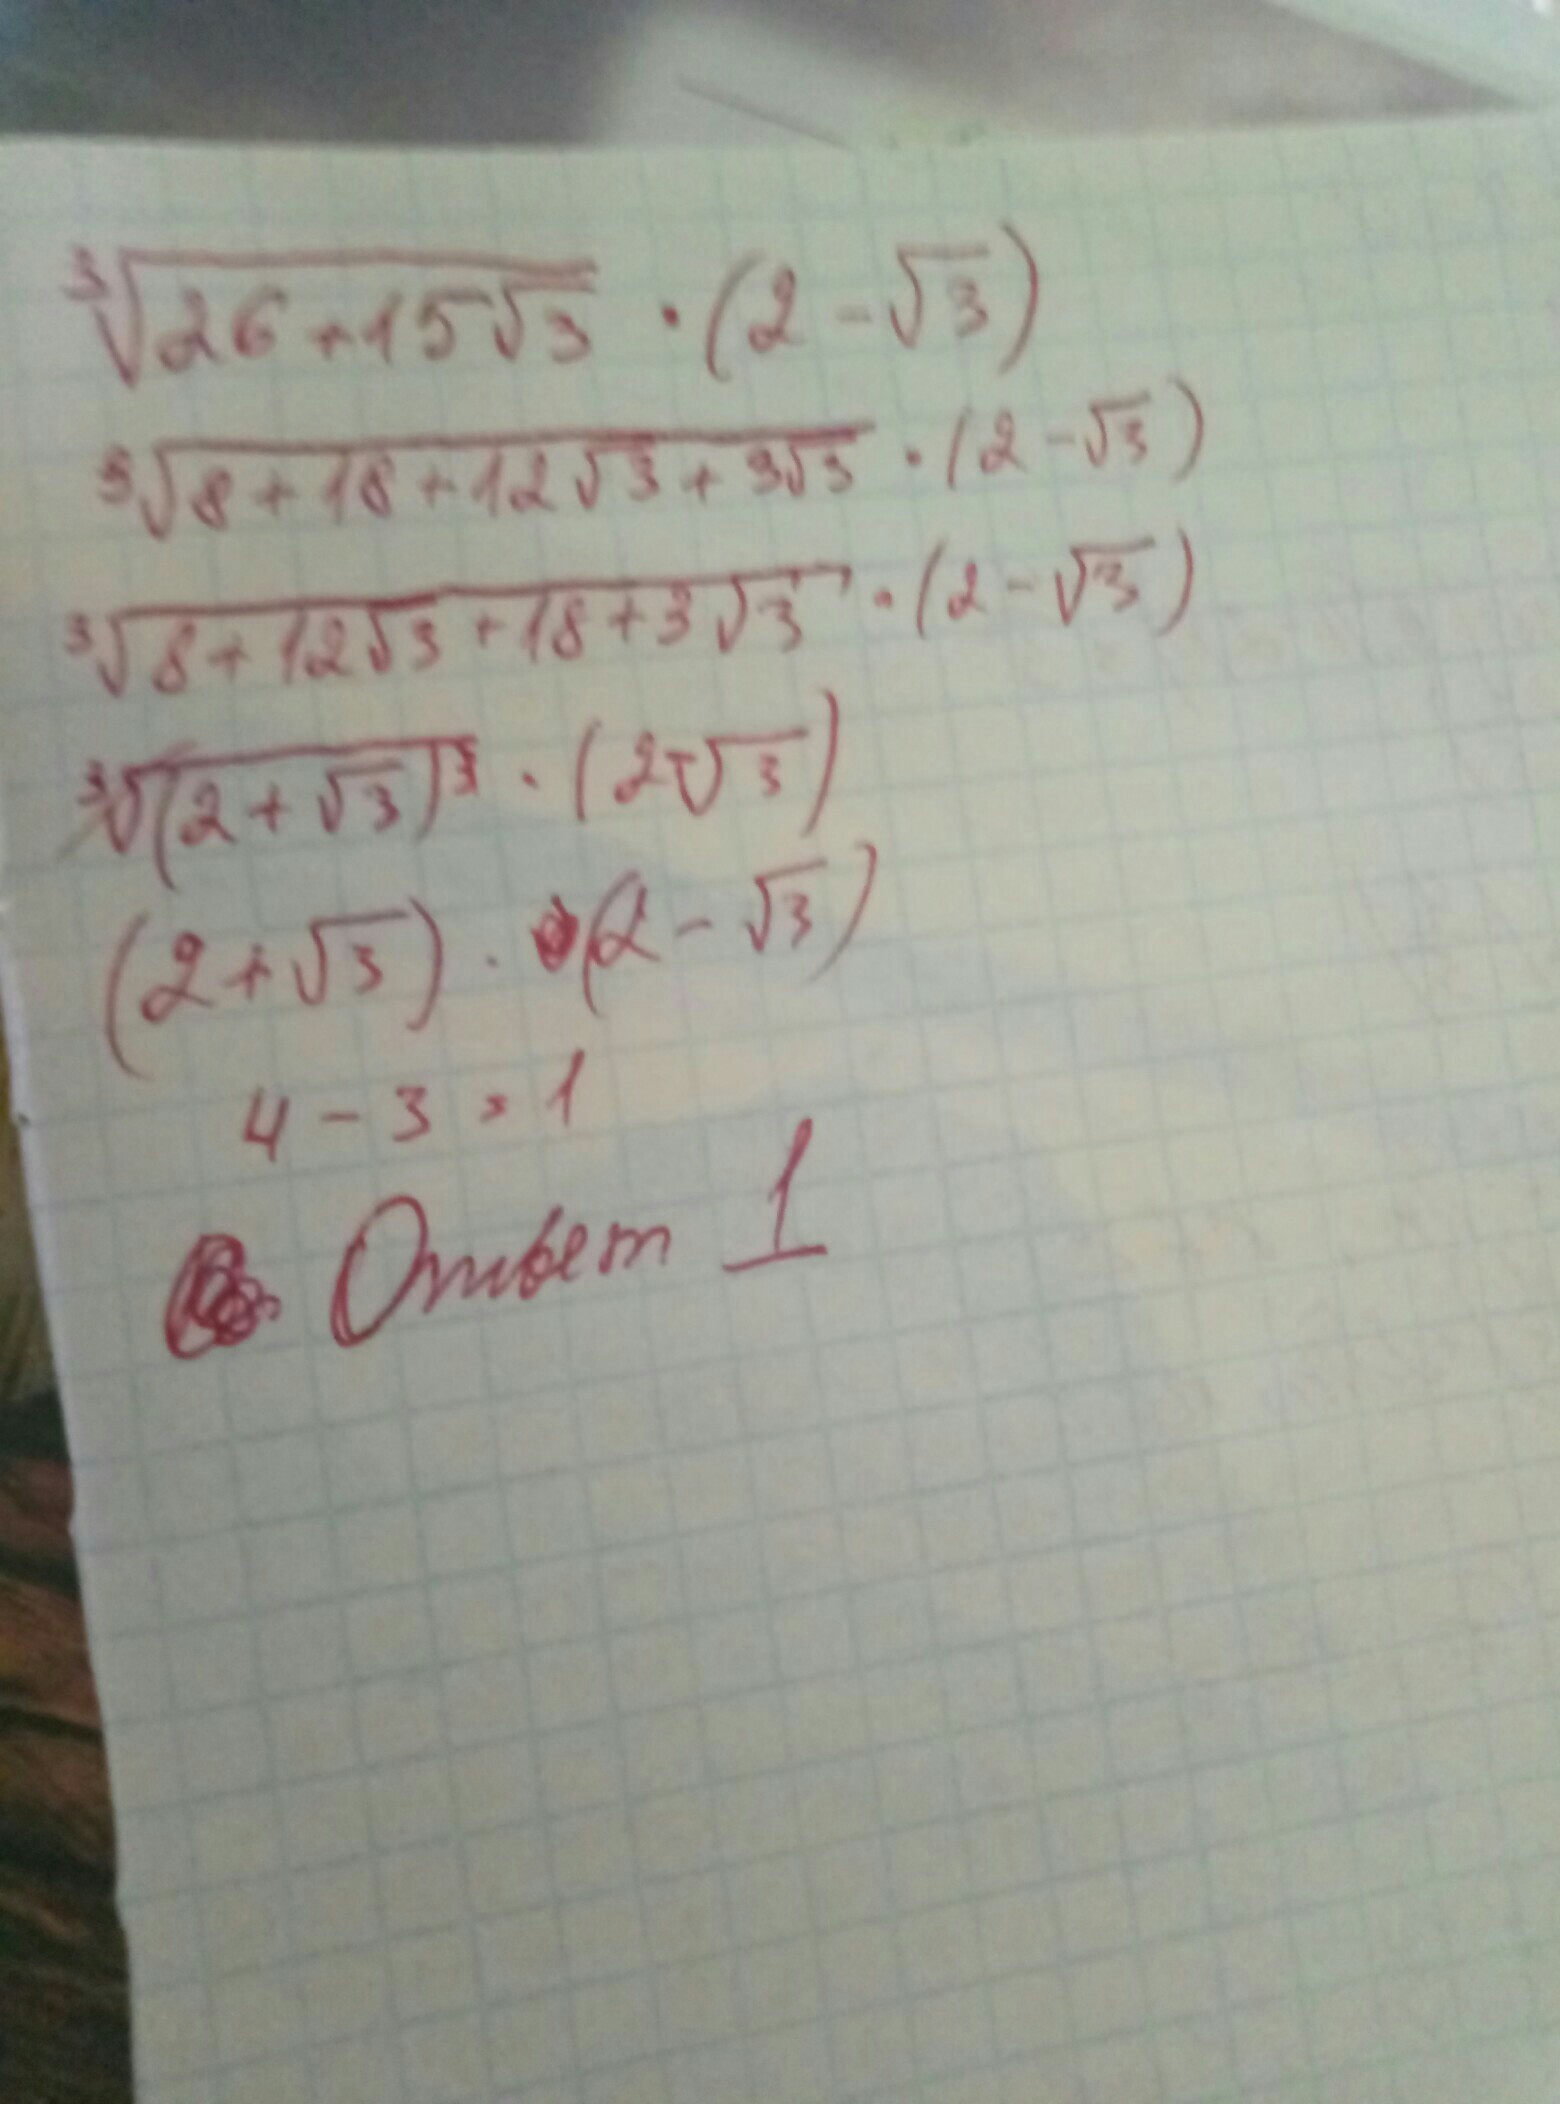 ∛(26+15√3) · (2-√3)
∛(8+18+12√3+3√3) · (2-√3)
∛(8+12√3+18+3√3) · (2-√3)
∛((2+√3)³) · (2-√3)
(2+√3) · (2-√3)
4-3=1
Ответ 1